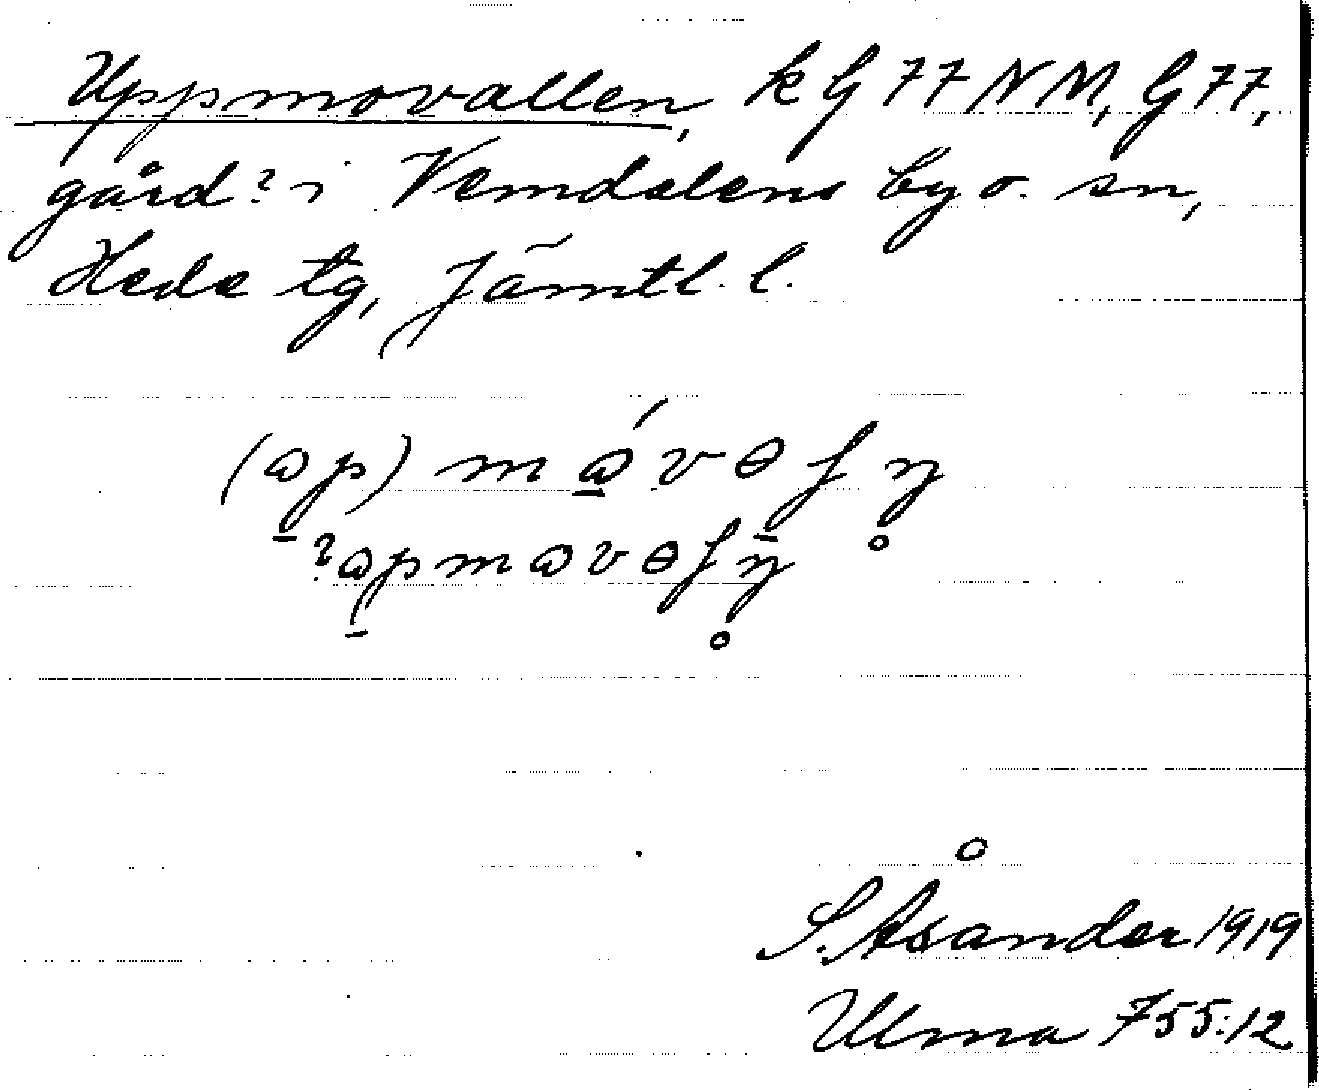 Uppmovallen, k G 77 NM, G 77,
gård? i Vemdalens by o. sn,
Hede tg, Jämtl. l.
S. Åsander 1919
Ulma 755:12